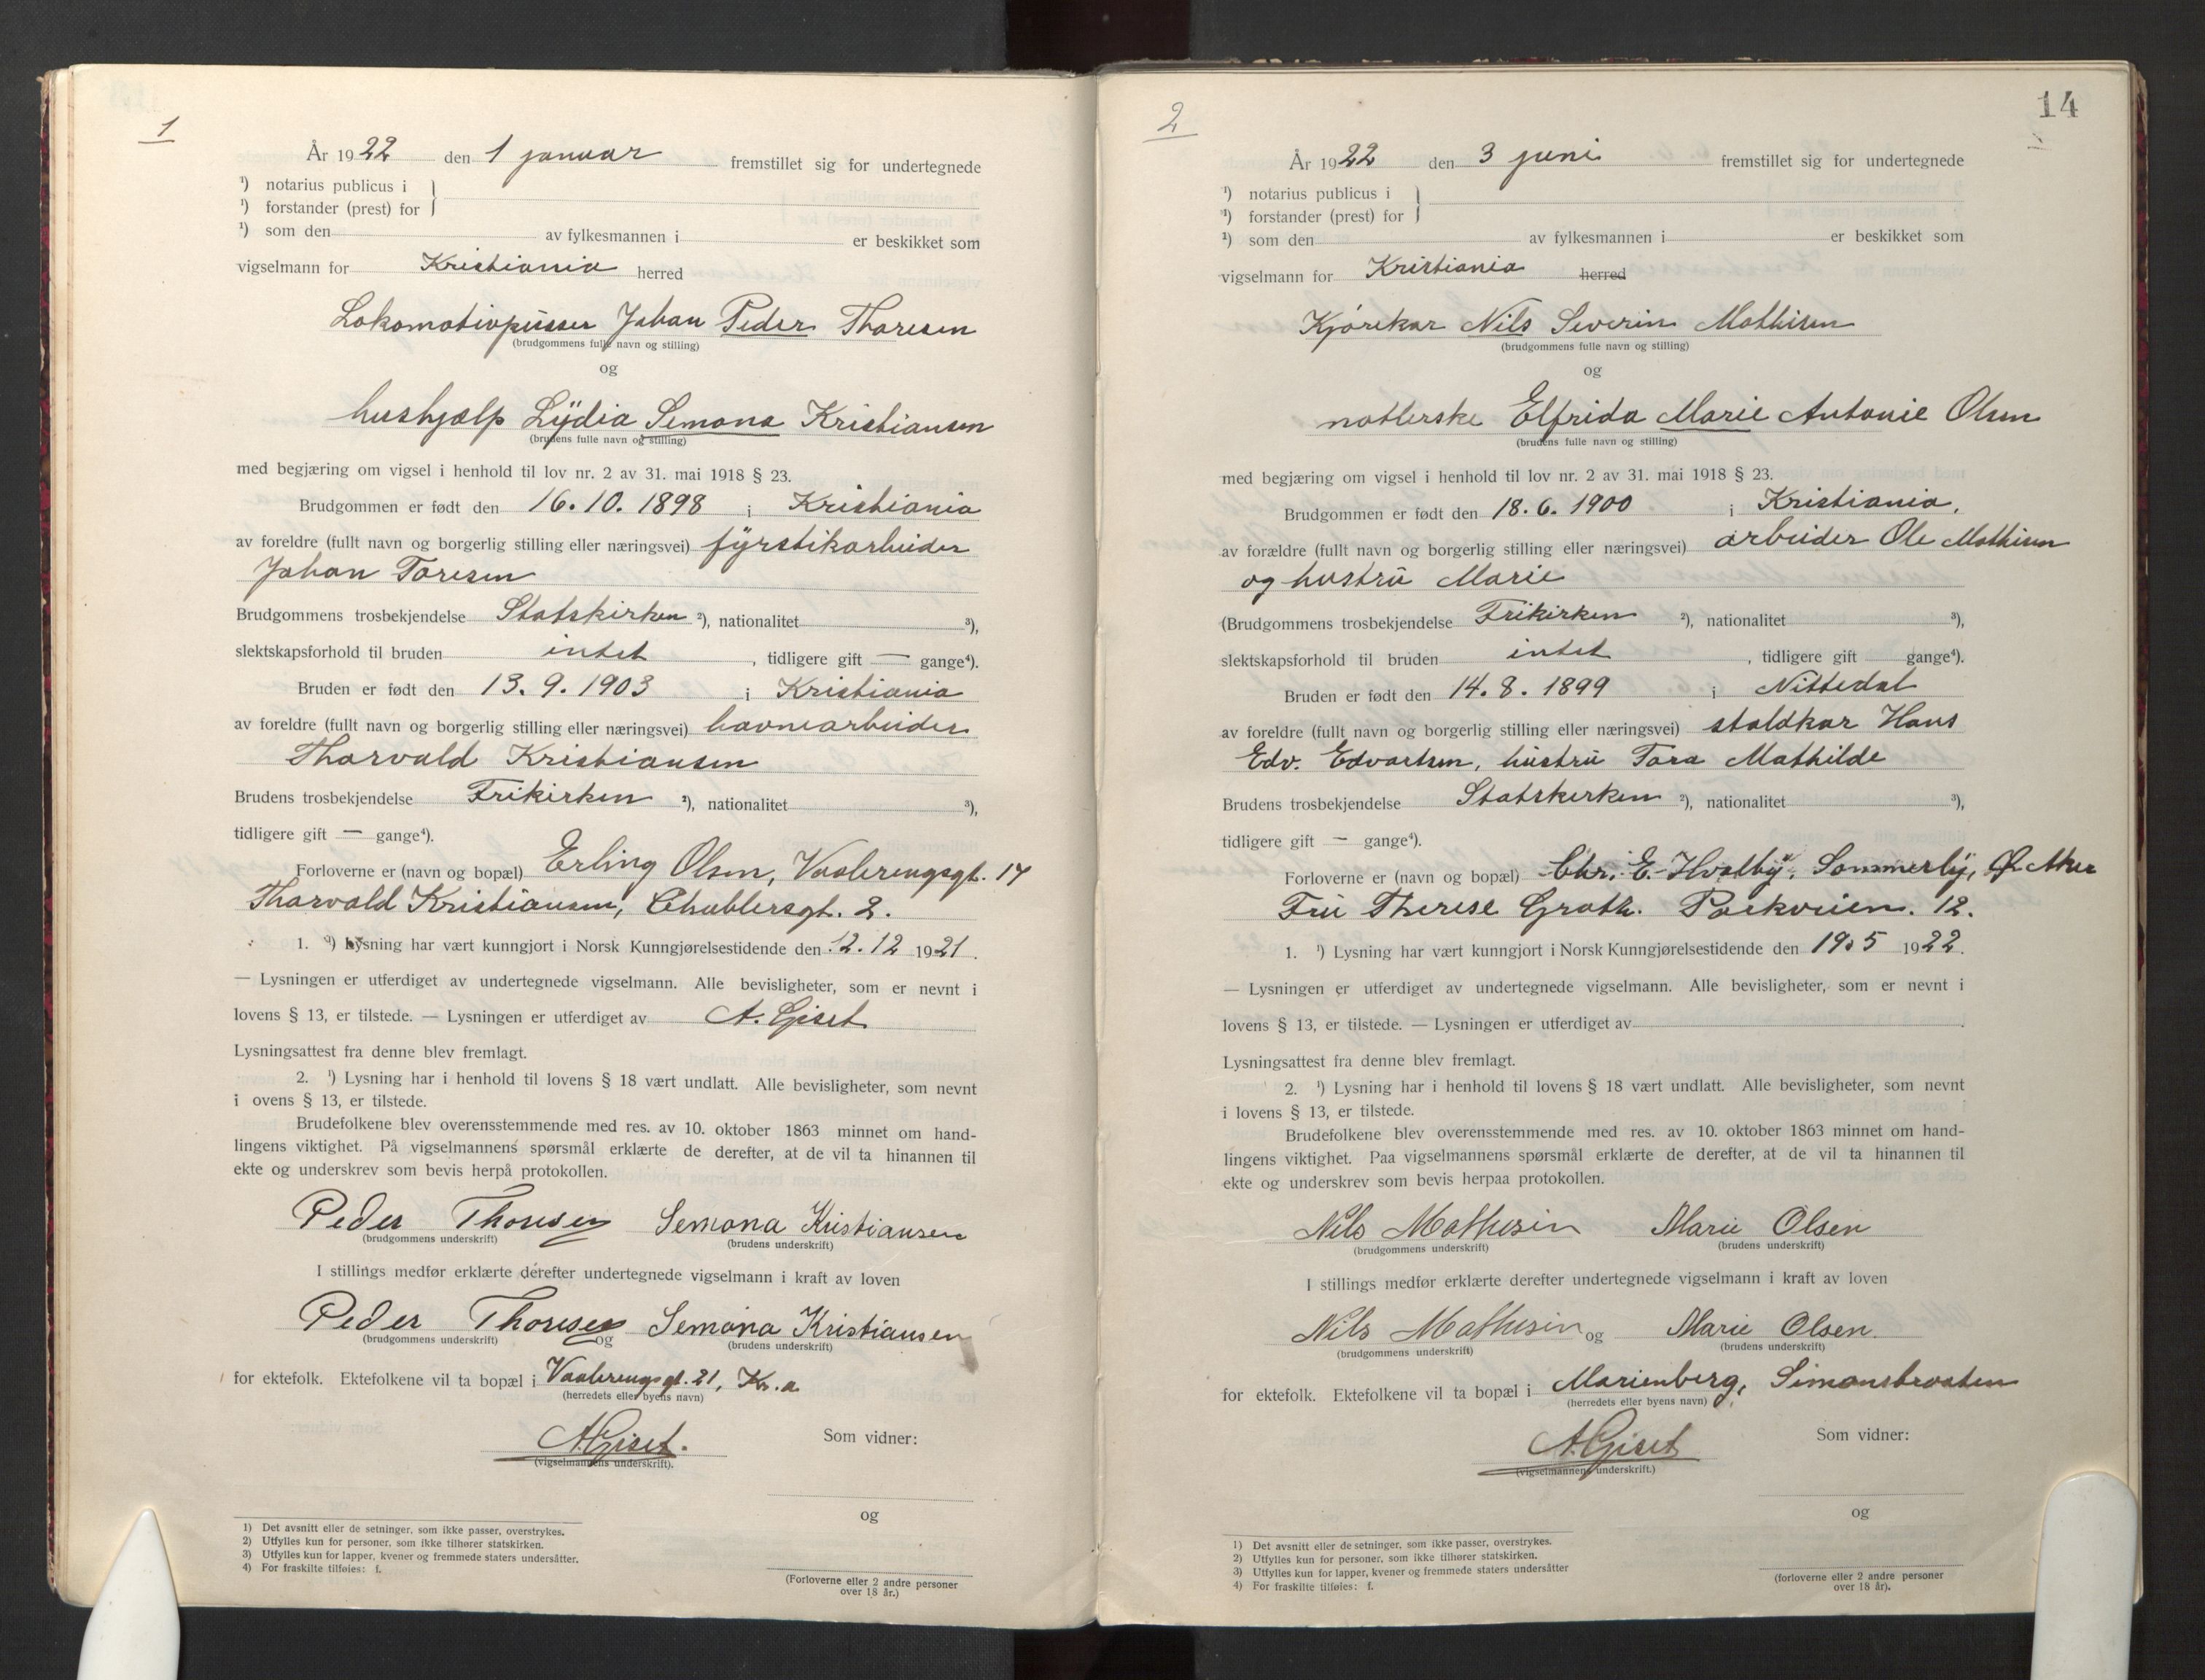 1
År 1922 den 1 januar fremstillet sig for undertegnede
¹) notarius publicus i
¹) forstander (prest) for
¹) som den av fylkesmannen i er beskikket som
vigselmann for Kristiania herred
Lokomotivpusser Johan Peder Thoresen
(brudgommens fulle navn og stilling)
og
hushjælp Lydia Semona Kristiansen
(brudens fulle navn og stilling)
med begjæring om vigsel i henhold til lov nr. 2 av 31. mai 1918 § 23.
Brudgommen er født den 16.10.1898 i Kristiania
av foreldre (fullt navn og borgerlig stilling eller næringsvei) fyrstikarbeider
Johan Toresen
Brudgommens trosbekjendelse Statskirken ²), nationalitet ³),
slektskapsforhold til bruden intet, tidligere gift — gange⁴).
Bruden er født den 13.9.1903 i Kristiania
av foreldre (fullt navn og borgerlig stilling eller næringsvei) havnearbeider
Thorvald Kristiansen
Brudens trosbekjendelse Frikirken ²), nationalitet ³),
tidligere gift — gange⁴).
Forloverne er (navn og bopæl) Erling Olsen, Vaalerengsgt. 17
Thorvald Kristiansen, Schüblersgt. 2.
1. ¹) Lysning har vært kunngjort i Norsk Kunngjørelsestidende den 12.12 1921.
— Lysningen er utferdiget av undertegnede vigselmann. Alle bevisligheter, som er nevnt i
lovens § 13, er tilstede. — Lysningen er utferdiget av A. Giset
Lysningsattest fra denne blev fremlagt.
2. ¹) Lysning har i henhold til lovens § 18 vært undlatt. Alle bevisligheter, som nevnt
i ovens § 13, er tilstede.
Brudefolkene blev overensstemmende med res. av 10. oktober 1863 minnet om hand-
lingens viktighet. På vigselmannens spørsmål erklærte de derefter, at de vil ta hinannen til
ekte og underskrev som bevis herpå protokollen.
Peder Thoresen Semona Kristiansen
(brudgommens underskrift) (brudens underskrift)
I stillings medfør erklærte derefter undertegnede vigselmann i kraft av loven
Peder Thoresen og Semona Kristiansen
(brudgommens underskrift) (brudens underskrift)
for ektefolk. Ektefolkene vil ta bopæl i Vaalerengsgt. 21, Kr.a
(herredets eller byens navn)
A Giset.
(vigselmannens underskrift).
Som vidner:
og
(Forloverne eller 2 andre personer
over 18 år.)
1) Det avsnitt eller de setninger, som ikke passer, overstrykes.
2) Utfylles kun for personer, som ikke tilhører statskirken.
3) Utfylles kun for lapper, kvener og fremmede staters undersåtter.
4) For fraskilte tilføies: f.
2
14
År 1922 den 3 juni fremstillet sig for undertegnede
¹) notarius publicus i
¹) forstander (prest) for
¹) som den av fylkesmannen i er beskikket som
vigselmann for Kristiania herred
Kjørekar Nils Severin Mathisen
(brudgommens fulle navn og stilling)
og
notlerske Elfrida Marie Antonie Olsen
(brudens fulle navn og stilling)
med begjæring om vigsel i henhold til lov nr. 2 av 31. mai 1918 § 23.
Brudgommen er født den 18.6.1900 i Kristiania,
av forældre (fullt navn og borgerlig stilling eller næringsvei) arbeider Ole Mathisen
og hustru Marie
(Brudgommens trosbekjendelse Frikirken ²), nationalitet ³),
slektskapsforhold til bruden intet, tidligere gift gange⁴).
Bruden er født den 14.8.1899 i Nittedal
av foreldre (fullt navn og borgerlig stilling eller næringsvei) staldkar Hans
Edv. Edvartsen, hustru Tora Mathilde
Brudens trosbekjendelse Statskerken ²), nationalitet ³),
tidligere gift — gange⁴).
Forloverne er (navn og bopæl) Chr. E. Hvalby, Sommerly, Ø. Aker
Fru Therese Groth. Parkveien. 12.
1. ¹) Lysning har vært kunngjort i Norsk Kunngjørelsestidende den 19.5 1922.
— Lysningen er utferdiget av undertegnede vigselmann. Alle bevisligheter, som er nevnt i
lovens § 13, er tilstede. — Lysningen er utferdiget av
Lysningsattest fra denne blev fremlagt.
2. ¹) Lysning har i henhold til lovens § 18 vært undlatt. Alle bevisligheter, som nevnt
i lovens § 13, er tilstede.
Brudefolkene blev overensstemmende med res. av 10. oktober 1863 minnet om hand-
lingens viktighet. Paa vigselmannens spørsmål erklærte de derefter, at de vil ta hinannen til
ekte og underskrev som bevis herpaa protokollen.
Nils Mathisin Marie Olsen
(brudgommens underskrift) (brudens underskrift)
I stillings medfør erklærte derefter undertegnede vigselmann i kraft av loven
Nils Mathisin og Marie Olsen.
(brudgommens underskrift) (brudens underskrift)
for ektefolk. Ektefolkene vil ta bopæl i Marienberg, Simensbraaten
(herredets eller byens navn)
A Giset
(vigselmannens underskrift.)
Som vidner:
og
(forloverne eller 2 andre personer
over 18 år).
1) Det avsnitt eller de setninger, som ikke passer, overstrykes.
2) Utfylles kun for personer, som ikke tilhører statskirken.
3) Utfylles kun for lapper, kvener og fremmede staters undersåtter
4) For fraskilte tilføies: f.